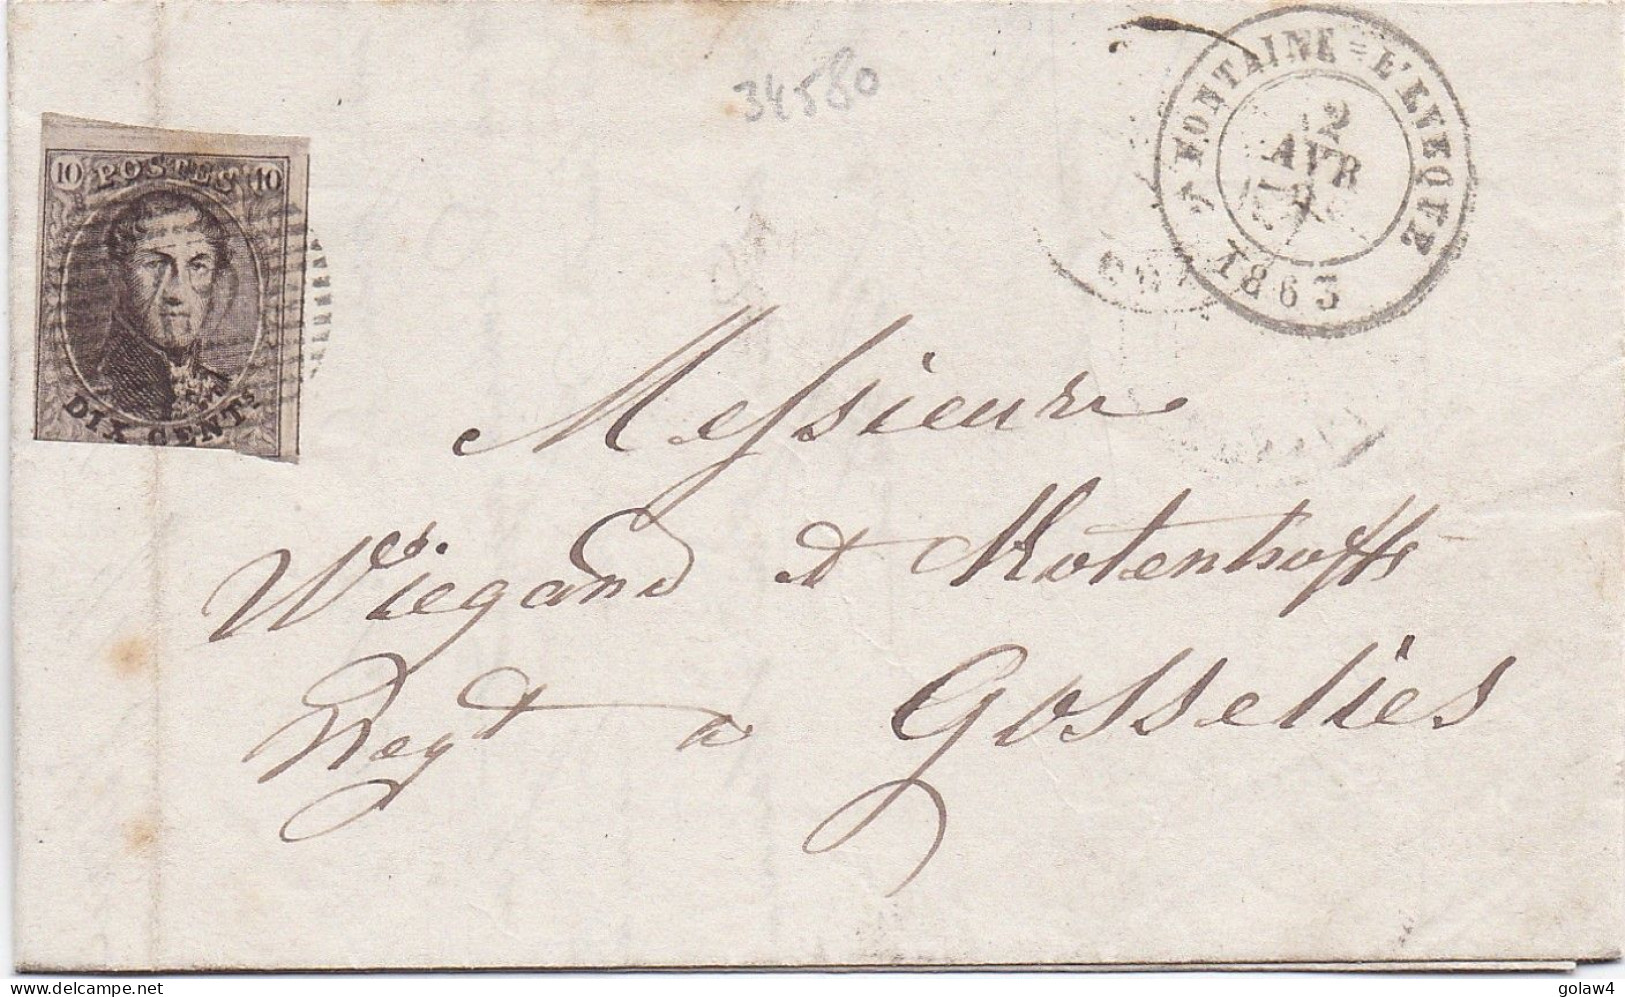 34580
FONTAINE=L'EVEQUE
2
AVR
1863
10 POSTES 10
DIX CENTS
Messieurs
Wiegand & Rotenhoffs
Negt a Gosselies
delcampe.net
golaw4